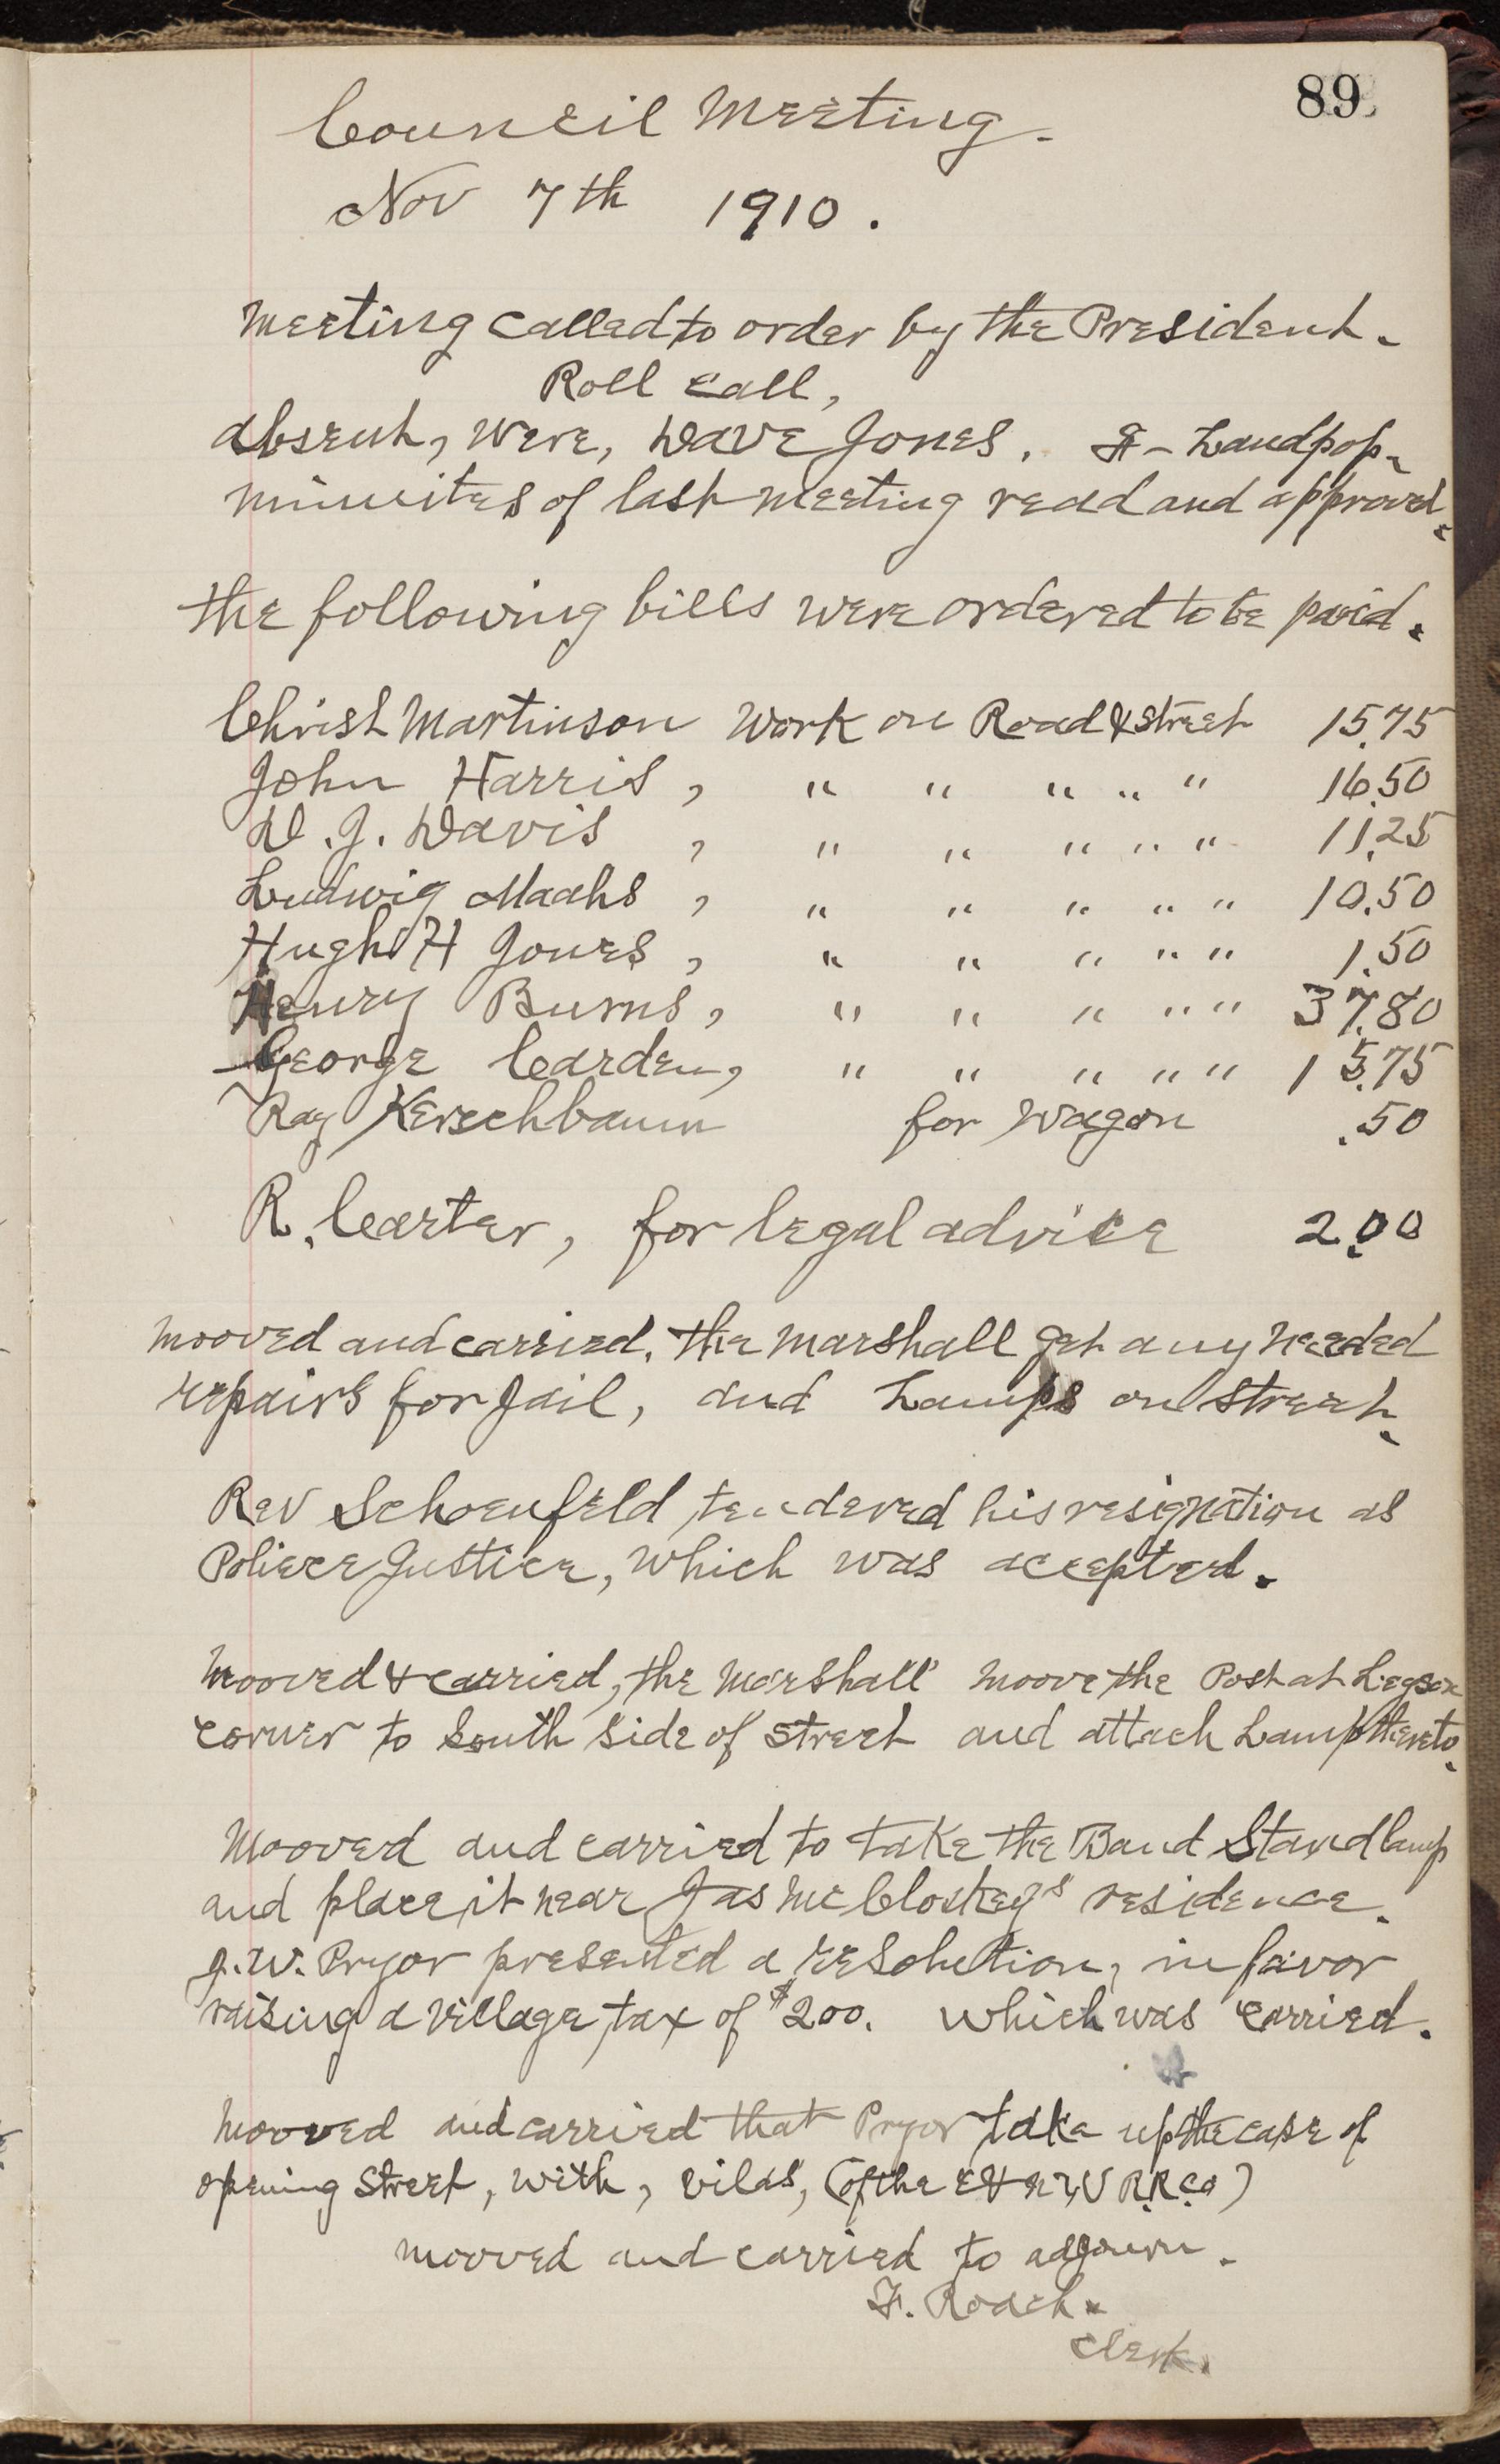 89
Council Meeting.
Nov 7th 1910.
Meeting called to order by the President.
Roll call,
absent, were, Dave Jones. F- Landpop.
minuites of last meeting read and approved.
the following bills were ordered to be paid.
Christ Martinson Work on Road & Street 15.75
John Harris, " " " " " 16.50
D. J. Davis , " " " " " 11.25
Ludwig Maahs , " " " " " 10.50
Hugh H Jones, " " " " " 1.50
Henry Burns, " " " " " 37.80
George Carden, " " " " " 15.75
Ray Kerschbaum for Wagon .50
R. Carter, for legal advice 2.00
Mooved and carried, the Marshall get any needed
repairs for Jail, and Lamps on Street.
Rev Schoenfeld tendered his resignation as
Police Justice, which was accepted.
Mooved & carried, the Marshall moove the Post at
corner to South side of street and attach Lamp thereto.
Mooved and carried to take the Band Stand lamp
and place it near Jas McCloskeys residence.
J. W. Pryor presented a resolution, in favor
raising a Village tax of $200. which was carried.
Mooved and carried that Pryor take up the case of
opening Street, with, vilas, (of the R.R.Co)
mooved and carried to adjourn.
F. Roach.
Clerk.